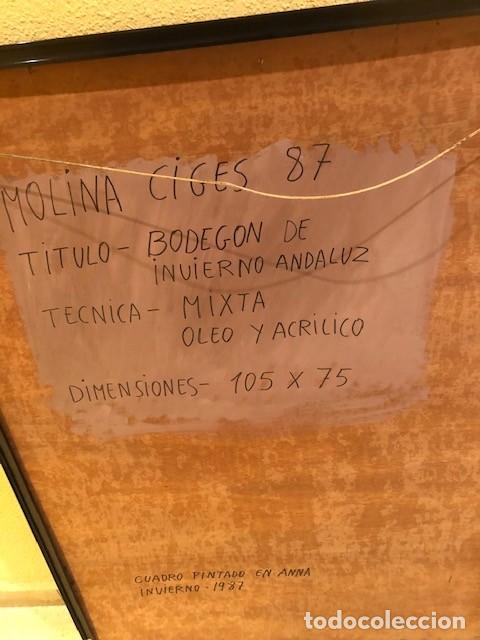 MOLINA CIGES 87
TITULO- BODEGON DE
INVIERNO ANDALUZ
TECNICA- MIXTA
OLEO Y ACRILICO
DIMENSIONES- 105 X 75
CUADRO PINTADO EN ANNA
INVIERNO - 1987
todocoleccion